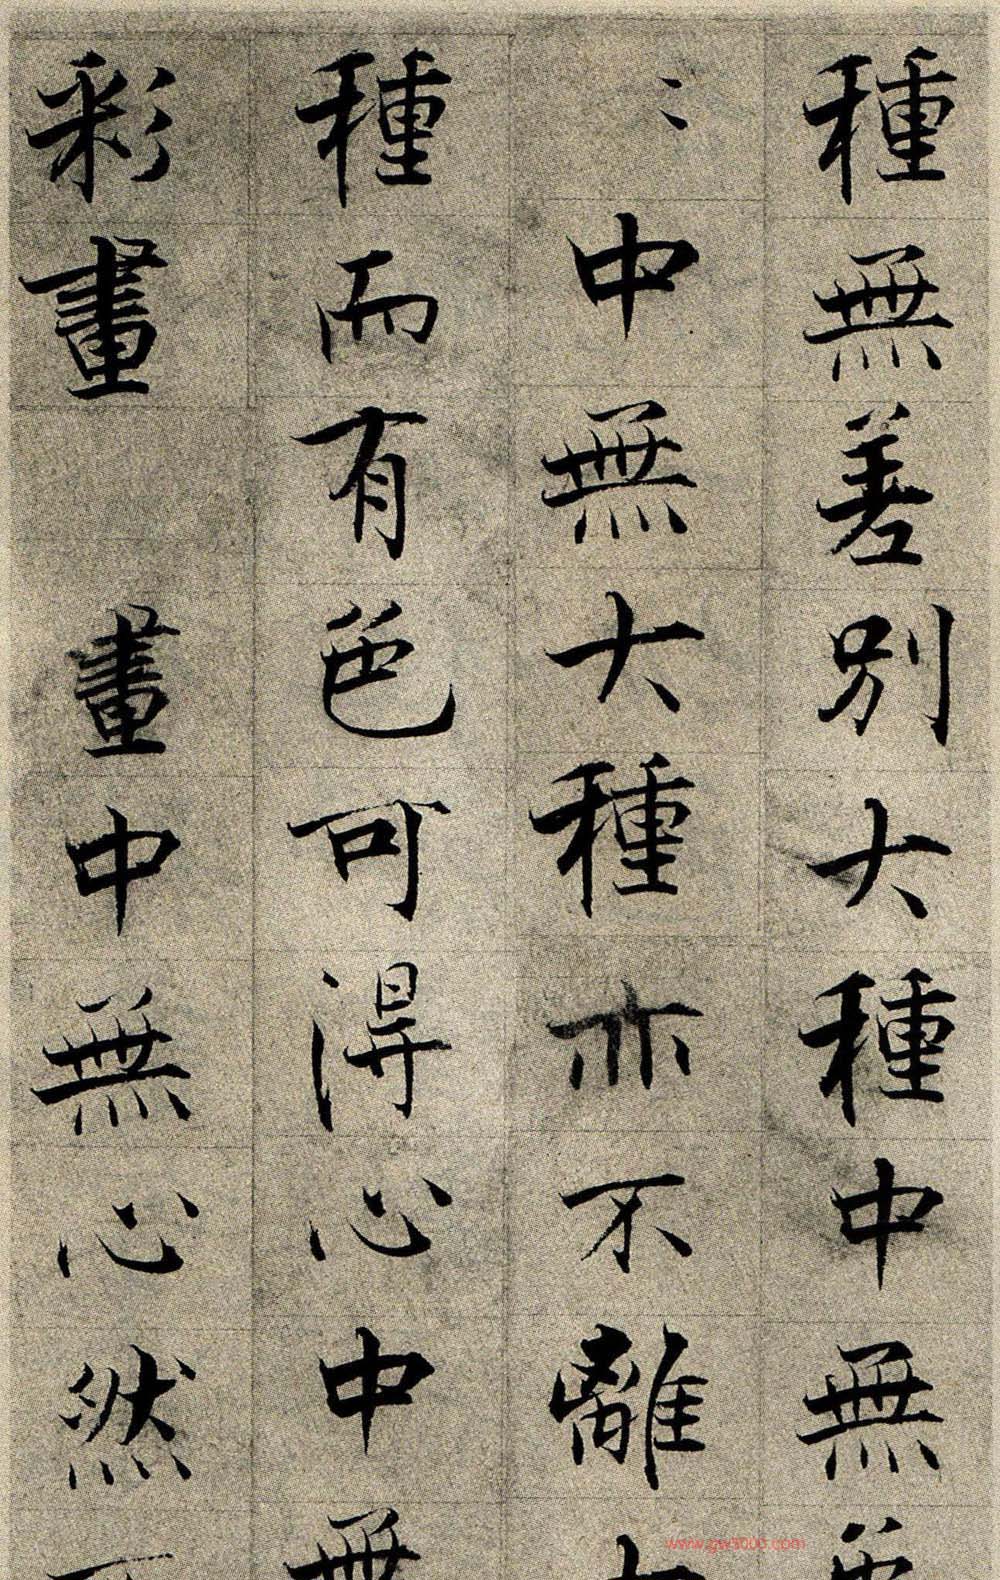 種無差別大種中無
〻中無大種亦不離
種而有色可得心中無
彩畫畫中無心然
www.gw3000.com